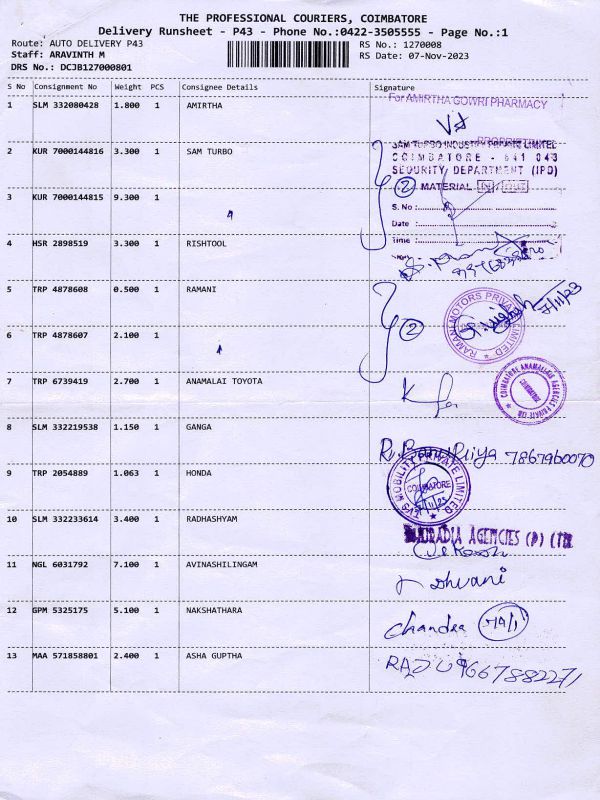 THE PROFESSIONAL COURIERS, COIMBATORE
Delivery Runsheet - P43 - Phone No.:0422-3505555 - Page No.:1
Route: AUTO DELIVERY P43 RS No.: 1270008
Staff: ARAVINTH M RS Date: 07-Nov-2023
DRS No.: DC3B127000801
S No Consignment No Weight PCS Consignee Details Signature
1 SLM 332080428 1.800 1 AMIRTHA
For AMIRTHA GOWRI PHARMACY
2 KUR 7000144816 3.300 1 SAM TURBO
SAM TURBO INDUSTRY PRIVATE LIMITED
COIMBATORE - 641 043
SECURITY DEPARTMENT (IPD)
2 MATERIAL IN / OUT
3 KUR 7000144815 9.300 1
S. No :
Date :
Time :
4 HSR 2898519 3.300 1 RISHTOOL
5 TRP 4878608 0.500 1 RAMANI
RAMANI MOTORS PRIVATE LIMITED
7/11/23
2
6 TRP 4878607 2.100 1
7 TRP 6739419 2.700 1 ANAMALAI TOYOTA
COIMBATORE ANAMALLAIS AGENCIES PRIVATE LTD
COIMBATORE
8 SLM 332219538 1.150 1 GANGA
R. Banu Priya 7867960070
9 TRP 2054889 1.063 1 HONDA
TVS MOBILITY PRIVATE LIMITED
COIMBATORE
10 SLM 332233614 3.400 1 RADHASHYAM
AGENCIES (P) LTD
11 NGL 6031792 7.100 1 AVINASHILINGAM
Dhvani
12 GPM 5325175 5.100 1 NAKSHATHARA
Chandra
13 MAA 571858801 2.400 1 ASHA GUPTHA
RAJU 9667882271